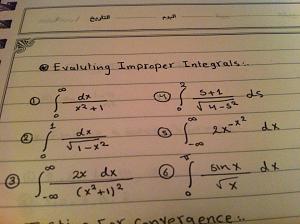 التاريخ اليوم
⊛ Evaluting Improper Integrals:.
① ∫₀^∞ dx / (x²+1) ④ ∫₀² (s+1) / √(4-s²) ds
② ∫₀¹ dx / √(1-x²) ⑤ ∫₋∞^∞ 2x^(-x²) dx
③ ∫₋∞^∞ 2x dx / (x²+1)² ⑥ ∫₀ sinx / √x dx
For convergence:.